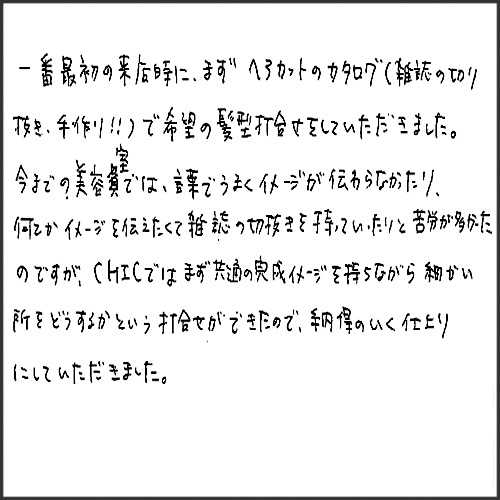 一番最初の来店時に、まず ヘアカットのカタログ(雑誌の切り
抜き、手作り!!)で希望の髪型打合せをしていただきました。
今までの美容室では、言葉でうまくイメージが伝わらなかったり、
何とかイメージを伝えたくて雑誌の切抜きを持っていったりと苦労が多かた
のですが、CHICではまず共通の完成イメージを持ちながら細かい
所をどうするかという打合せができたので、納得のいく仕上り
にしていただきました。